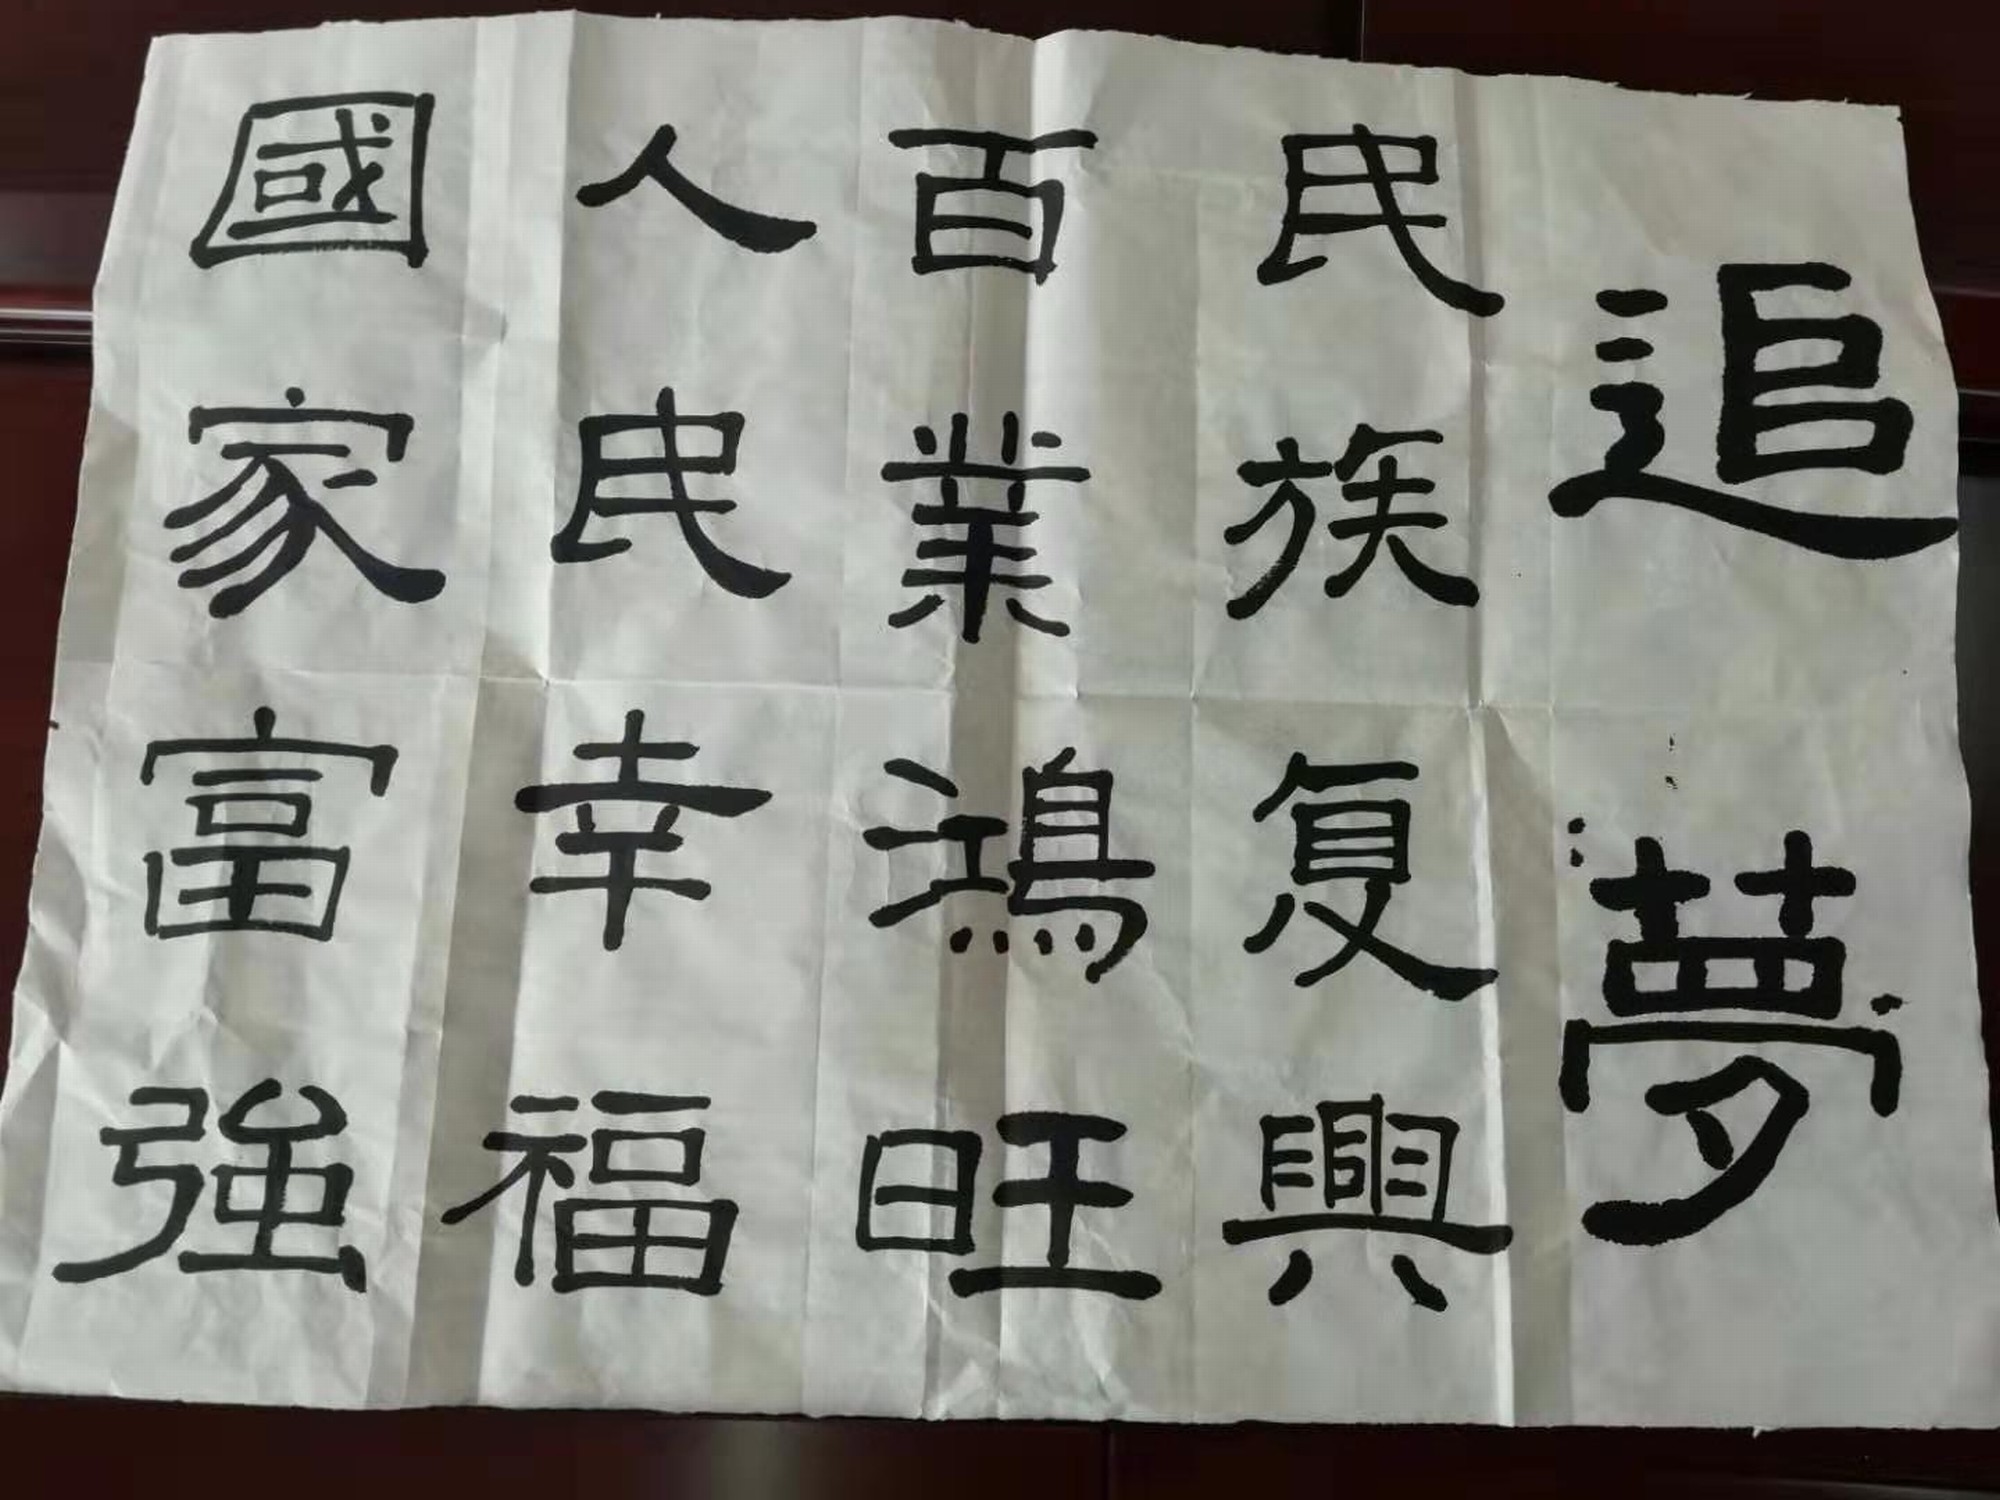 追夢
民族复興
百業鴻旺
人民幸福
國家富強